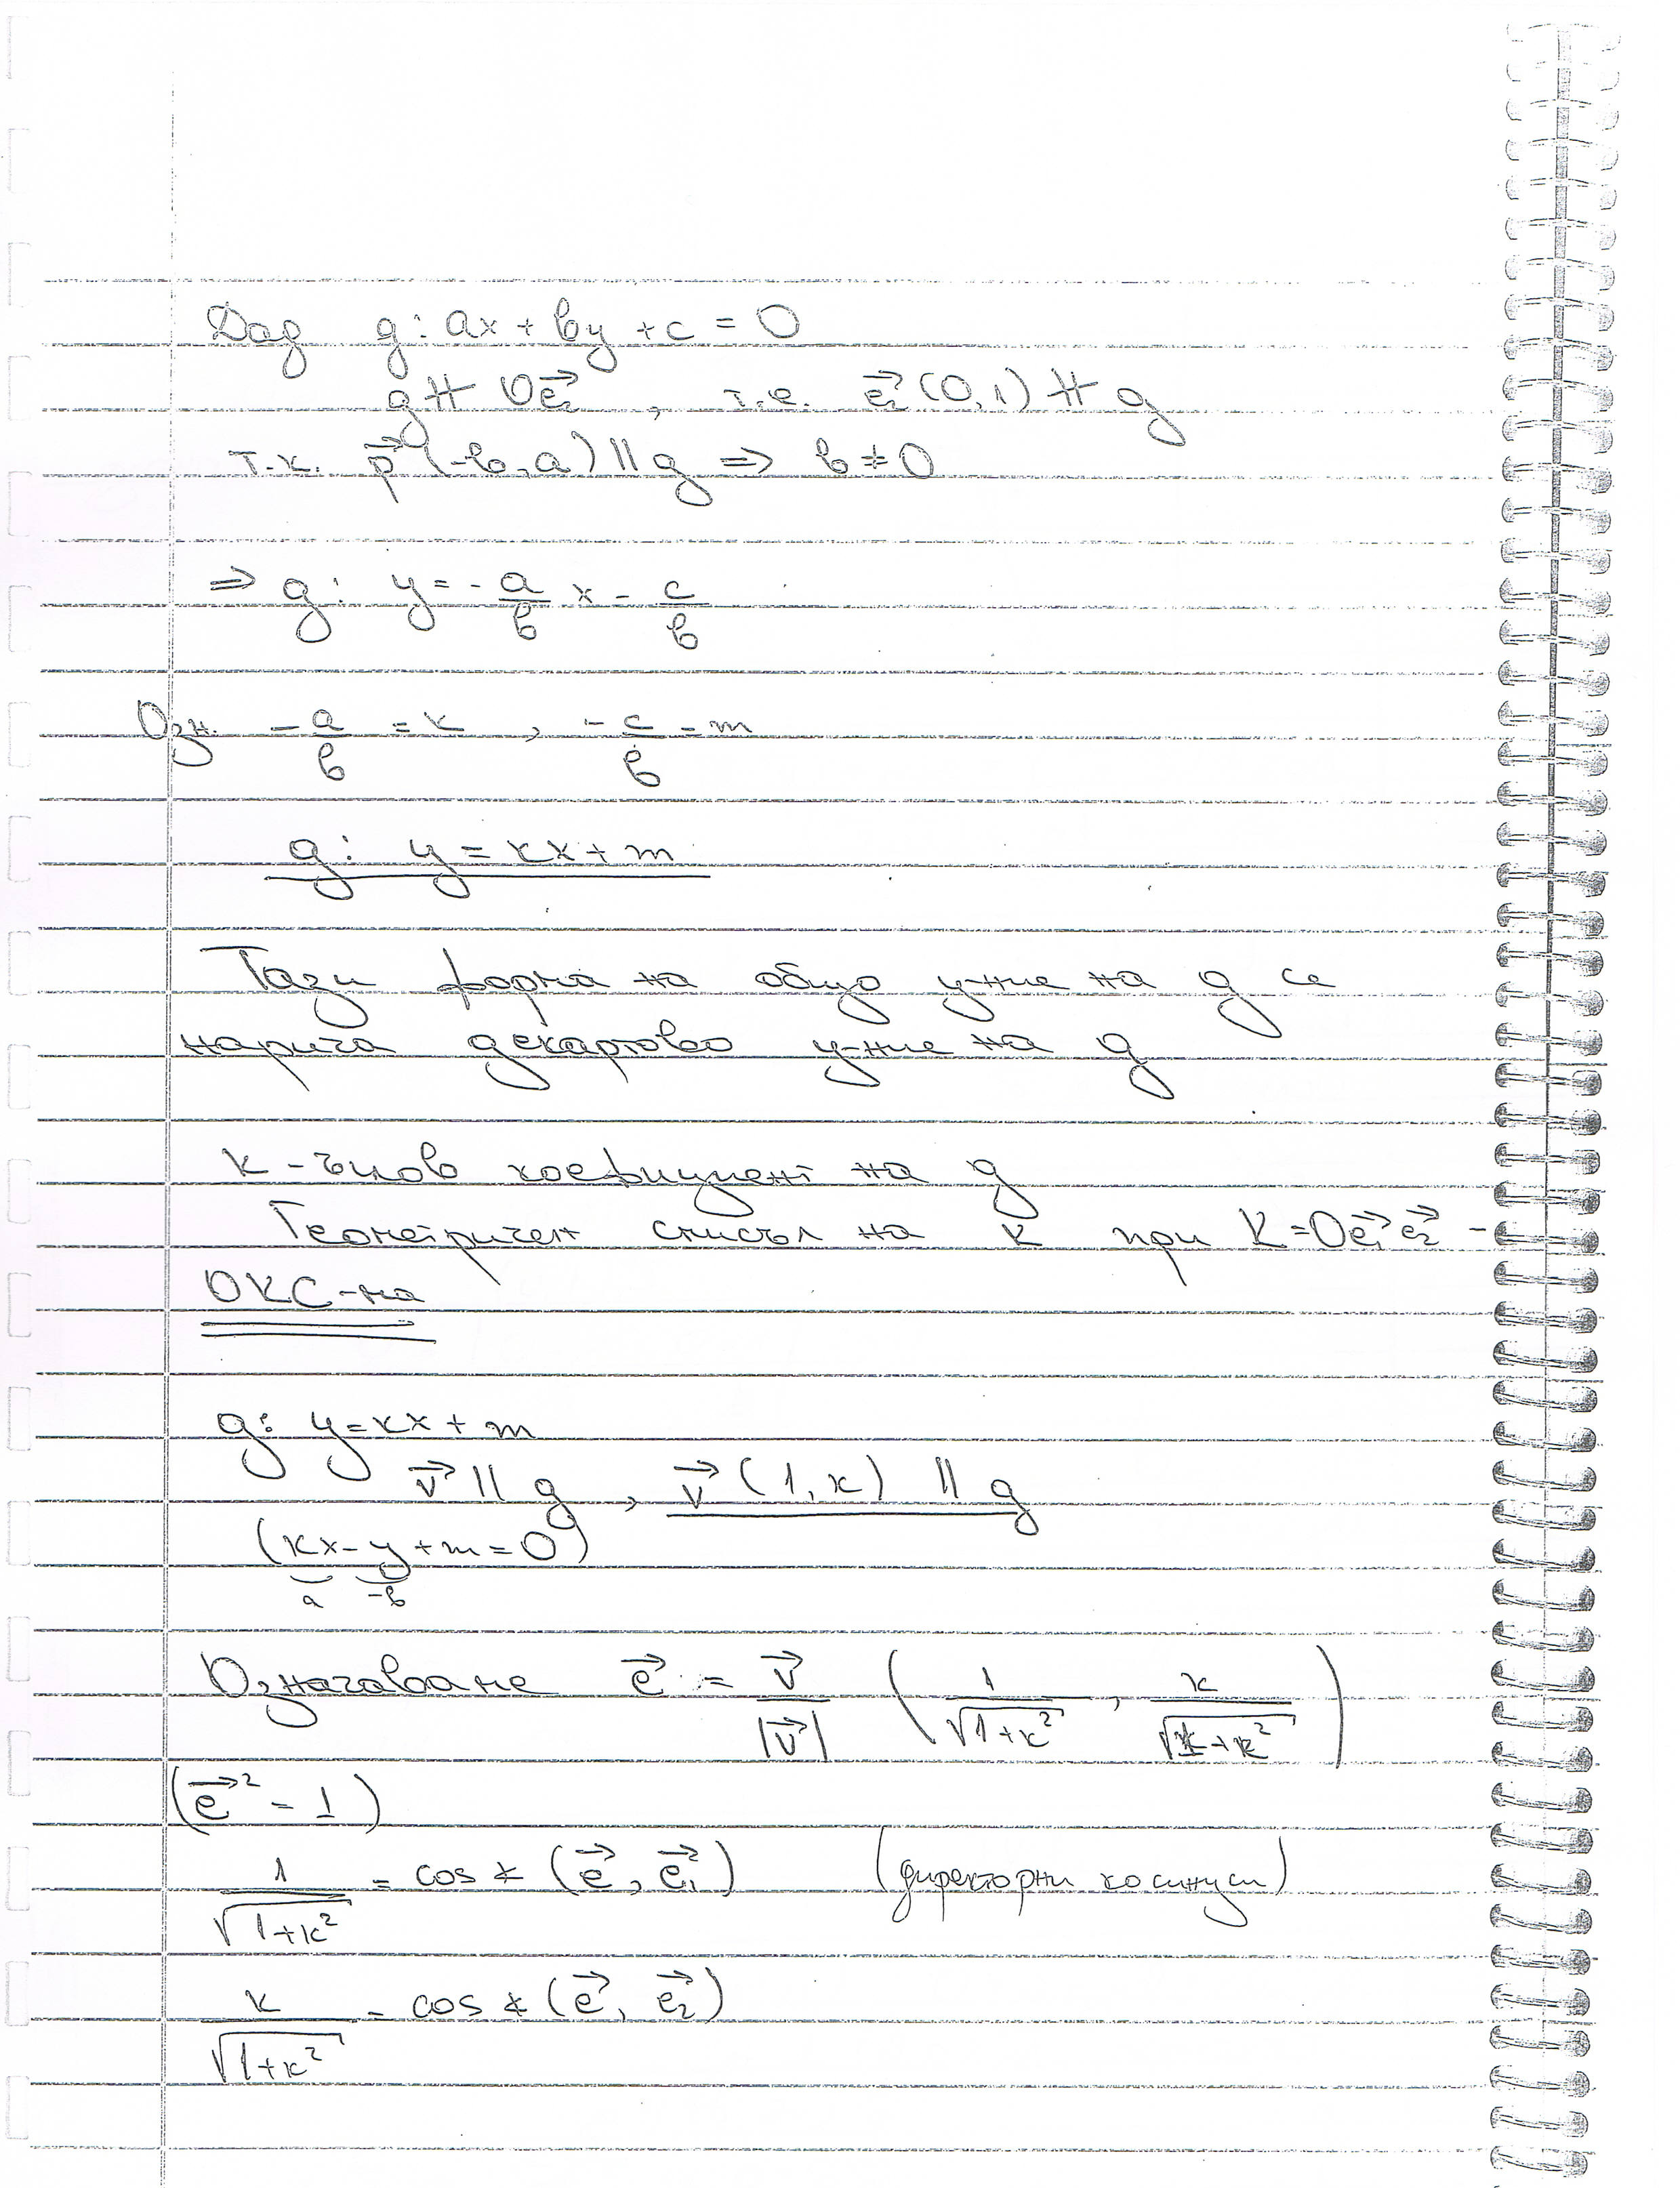 Дад g: ax + by + c = 0
g ∦ Oe₂⃗, т.е. e₂⃗ (0,1) ∦ g
т.к. p⃗ (-b, a) || g ⇒ b ≠ 0
⇒ g: y = - a/b x - c/b
Озн. - a/b = k, - c/b = m
g: y = kx + m
Тази форма на общо у-ние на g се
нарича декартово у-ние на g
k - ъглов коефициент на g
Геометричен смисъл на k при K = Oe₁⃗e₂⃗ -
ОКС-ма
g: y = kx + m
v⃗ || g, v⃗ (1, k) || g
(kx - y + m = 0)
a -b
Означаваме e⃗ := v⃗/|v⃗| (1/√(1+k²), k/√(1+k²))
(e⃗² = 1)
1/√(1+k²) = cos ∢ (e⃗, e₁⃗) (директорни косинуси)
k/√(1+k²) = cos ∢ (e⃗, e₂⃗)